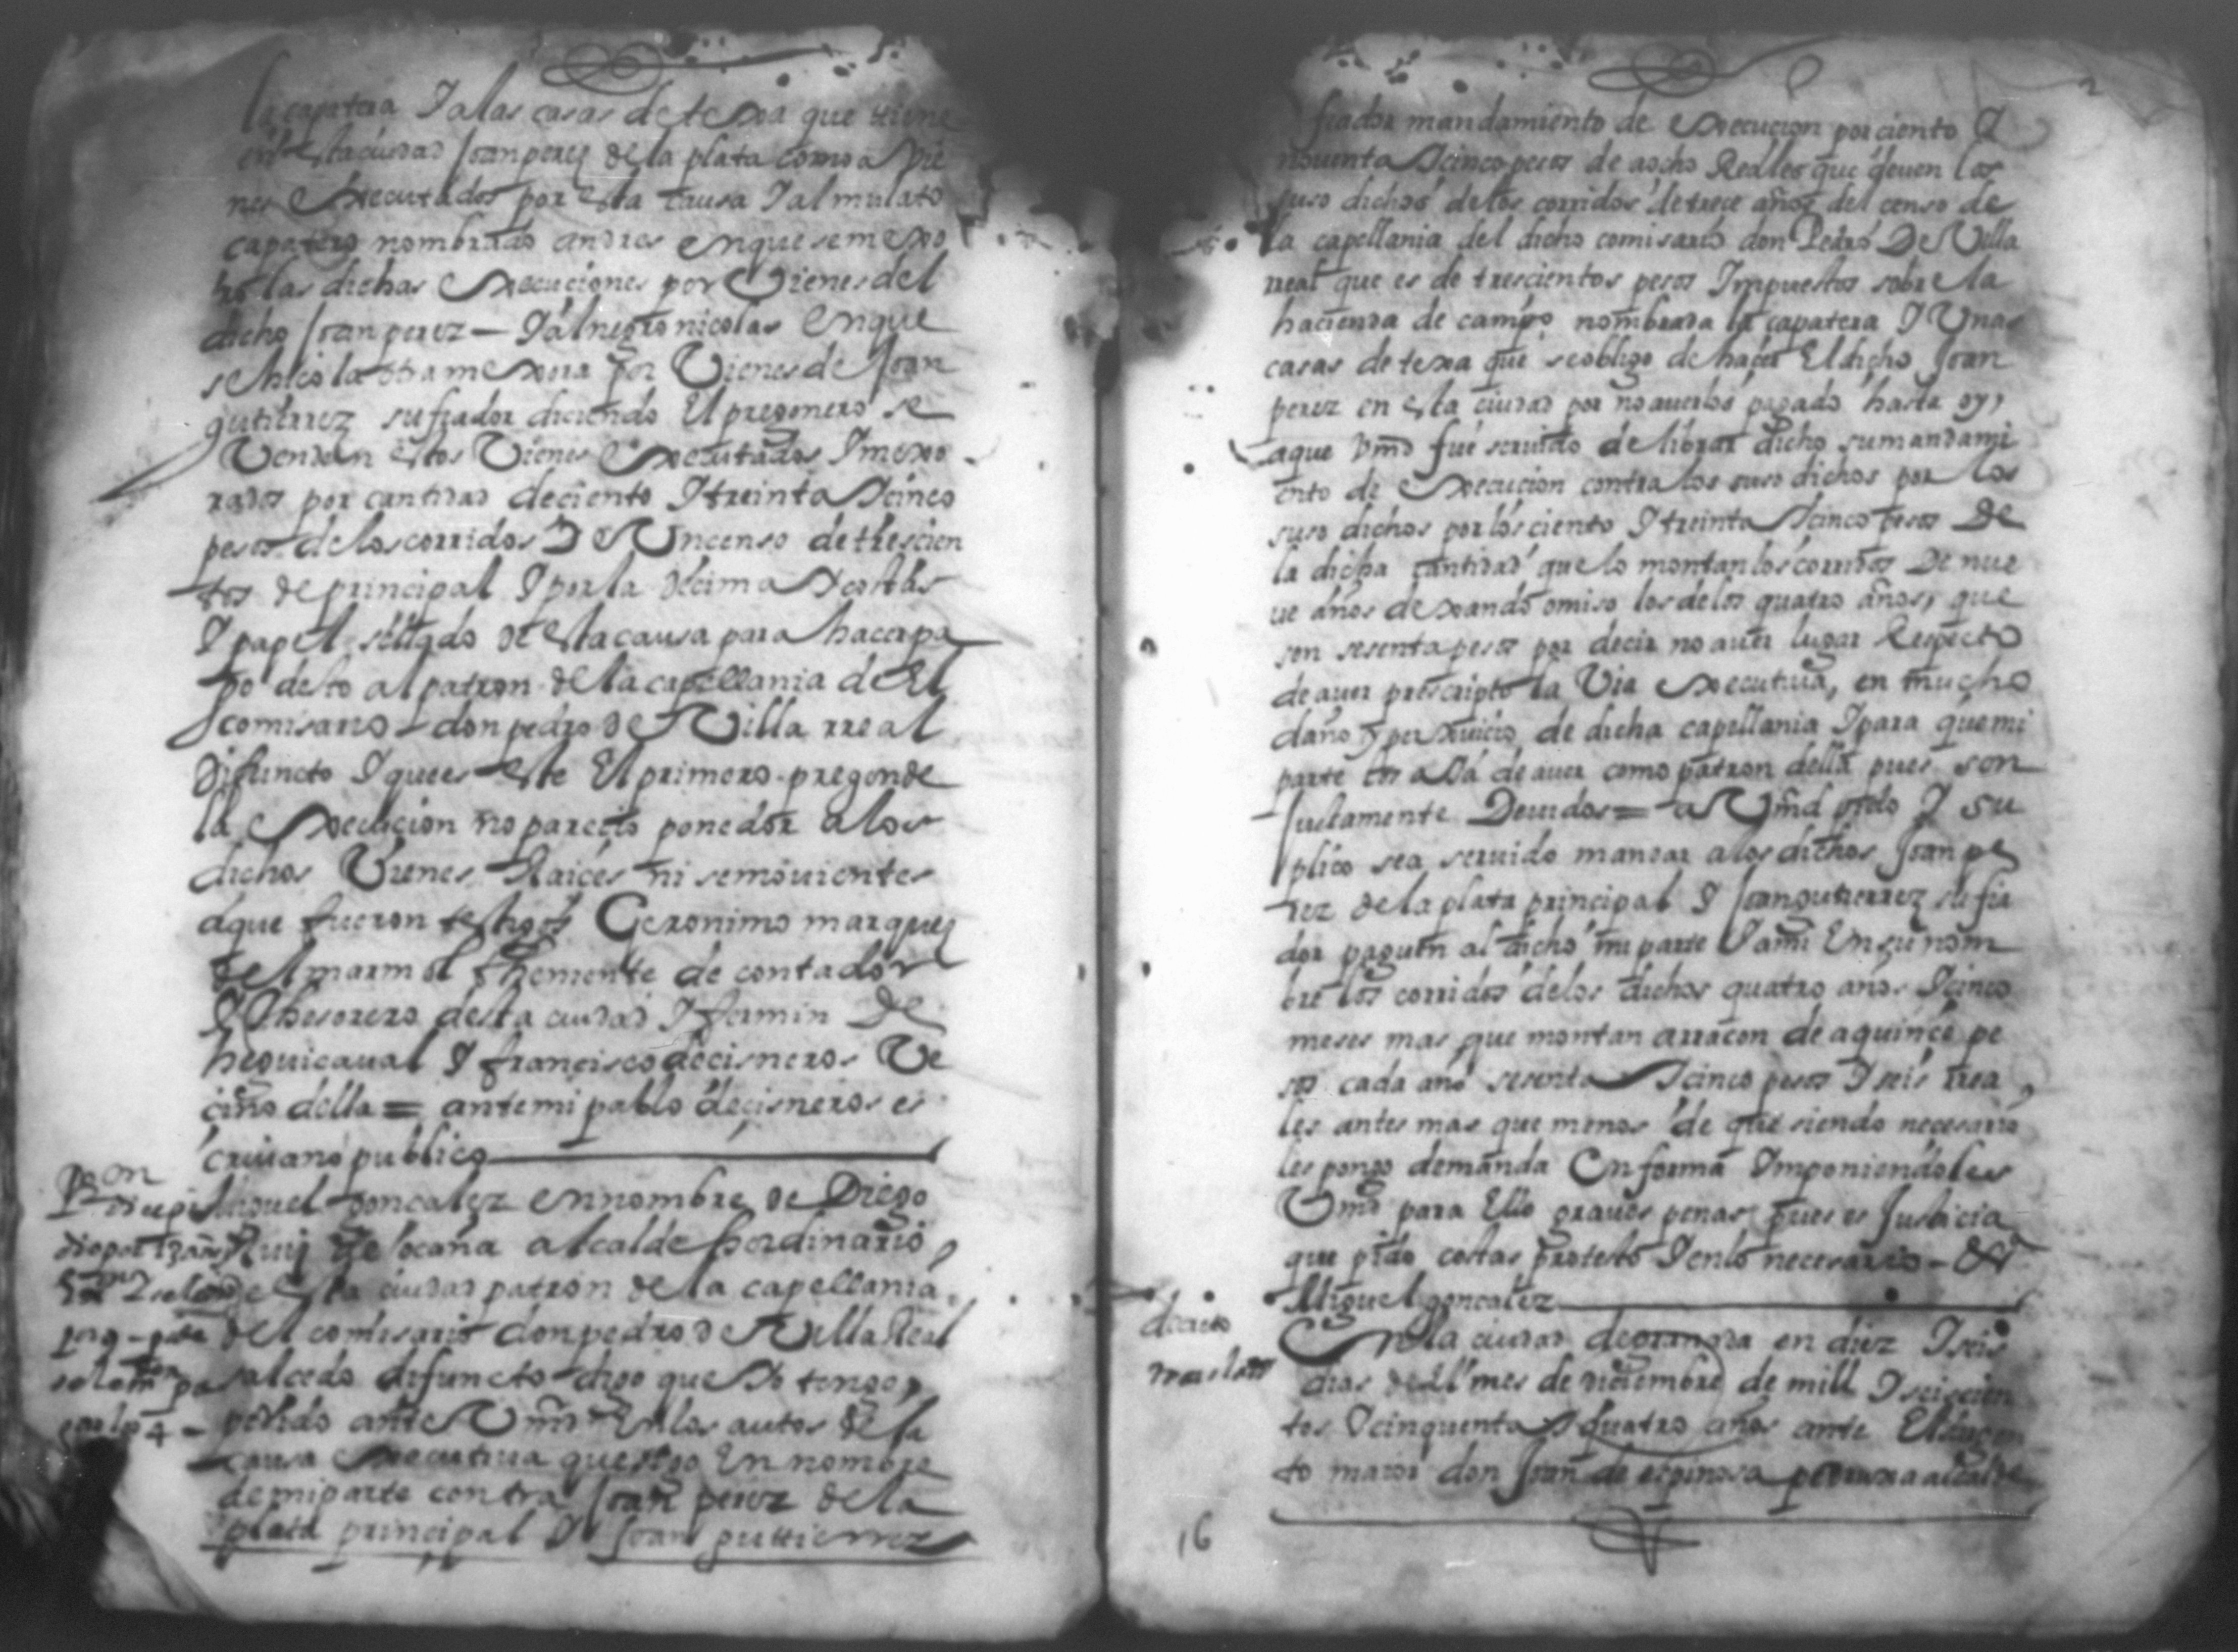 la capatera I a las casas de texa que tiene
en esta ciudad Joan perez de la plata como a vie
nes executados por esta causa I al mulato
capatero nombrado andres en que se mexo
ro las dichas execuciones por Vienes del
dicho Joan perez — I al negro nicolas En que
se hico la otra mexora por Vienes de Joan
gutierrez su fiador diciendo El pregonero se
Venden estos Vienes Executados I mexo
rados por cantidad de ciento I treinta I cinco
pesos de los corridos De Un censo de trescien
tos de principal I por la decima I costas
I papel sellado de esta causa para hacer pa
go desto al patron de la capellania de El
comisario don pedro de Villa rreal
Difuncto I que es este El primero pregon de
la Execucion no parecio ponedor a los
dichos Vienes Raices ni semouientes
a que fueron testigos Geronimo marquez
del marmol theniente de contador
I thesorero desta ciudad I fermin De
heguicaual I francisco de cisneros Ve
cino della = ante mi pablo de cisneros es
criuano publico
Miguel goncalez en nombre de Diego
Ruiz de ocaña alcalde hordinario
de esta ciudad patron de la capellania
del comisario don pedro de Villa Real
salcedo difuncto digo que Io tengo
pedido ante Vmd En los autos de la
causa executiua que sigo En nombre
de mi parte contra Joan perez de la
plata principal I Joan guttierrez
fiador mandamiento de execucion por ciento I
nouenta I cinco pesos de a ocho Reales que deuen los
suso dichos de los corridos de trece años del censo de
la capellania del dicho comisario don Pedro De Villa
rreal que es de trescientos pesos Impuestos sobre la
hacienda de campo nombrada la capatera I Unas
casas de texa que se obligo de hacer El dicho Joan
perez en esta ciudad por no auerlos pagado hasta oy,
a que Vmd fue seruido de librar dicho su mandami
ento de Execucion contra los suso dichos por los
suso dichos por los ciento I treinta I cinco pesos De
la dicha cantidad que lo montan los corridos De nue
ue años dexando omiso los de los quatro años, que
son sesenta pesos por decir no auer lugar Respecto
de auer prescripto la Via executiua, en mucho
daño y perxuicio de dicha capellania I para que mi
parte los aIa de auer como patron della pues son
Justamente Deuidos = a Vmd pido I su
plico sea seruido mandar a los dichos Joan pe
rez de la plata principal I Joan gutierrez su fia
dor paguen al dicho mi parte I a mi En su nom
bre los corridos de los dichos quatro años I cinco
meses mas que montan a rracon de a quince pe
sos cada año sesenta I cinco pesos I seis rrea
les antes mas que menos de que siendo necesario
les pongo demanda En forma Imponiendoles
Vmd para Ello graues penas pues es Justicia
que pido costas protesto I en lo necesario - &
Miguel goncalez
decreto
traslado
En la ciudad de granada en diez I seis
dias del mes de nouiembre de mill I seiscien
tos I cinquenta I quatro años ante El sargen
to maior don Joan de espinosa pedruxa alcalde
16